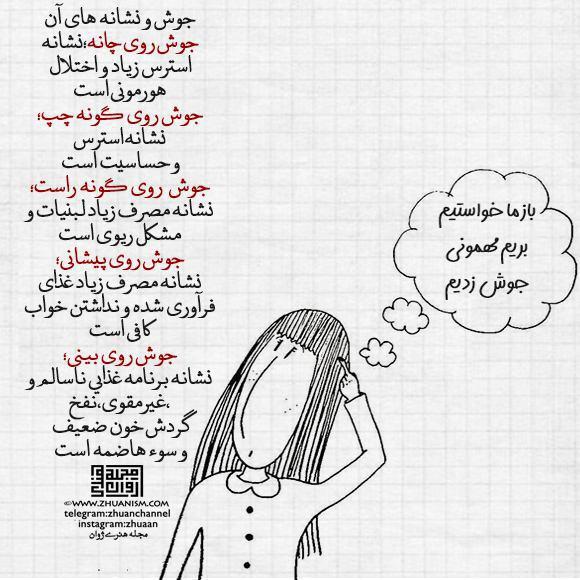 جوش و نشانه های آن
جوش روی چانه؛نشانه
استرس زیاد و اختلال
هورمونی است
جوش روی گونه چپ؛
نشانه استرس
و حساسیت است
جوش روی گونه راست؛
نشانه مصرف زیاد لبنیات و
مشکل ریوی است
جوش روی پیشانی؛
نشانه مصرف زیاد غذای
فرآوری شده و نداشتن خواب
کافی است
جوش روی بینی؛
نشانه برنامه غذایی ناسالم و
،غیرمقوی،نفخ
گردش خون ضعیف
و سوء هاضمه است
باز ما خواستیم
بریم مهمونی
جوش زدیم
©WWW.ZHUANISM.COM
telegram:zhuanchannel
instagram:zhuaan
مجله هنری ژوان